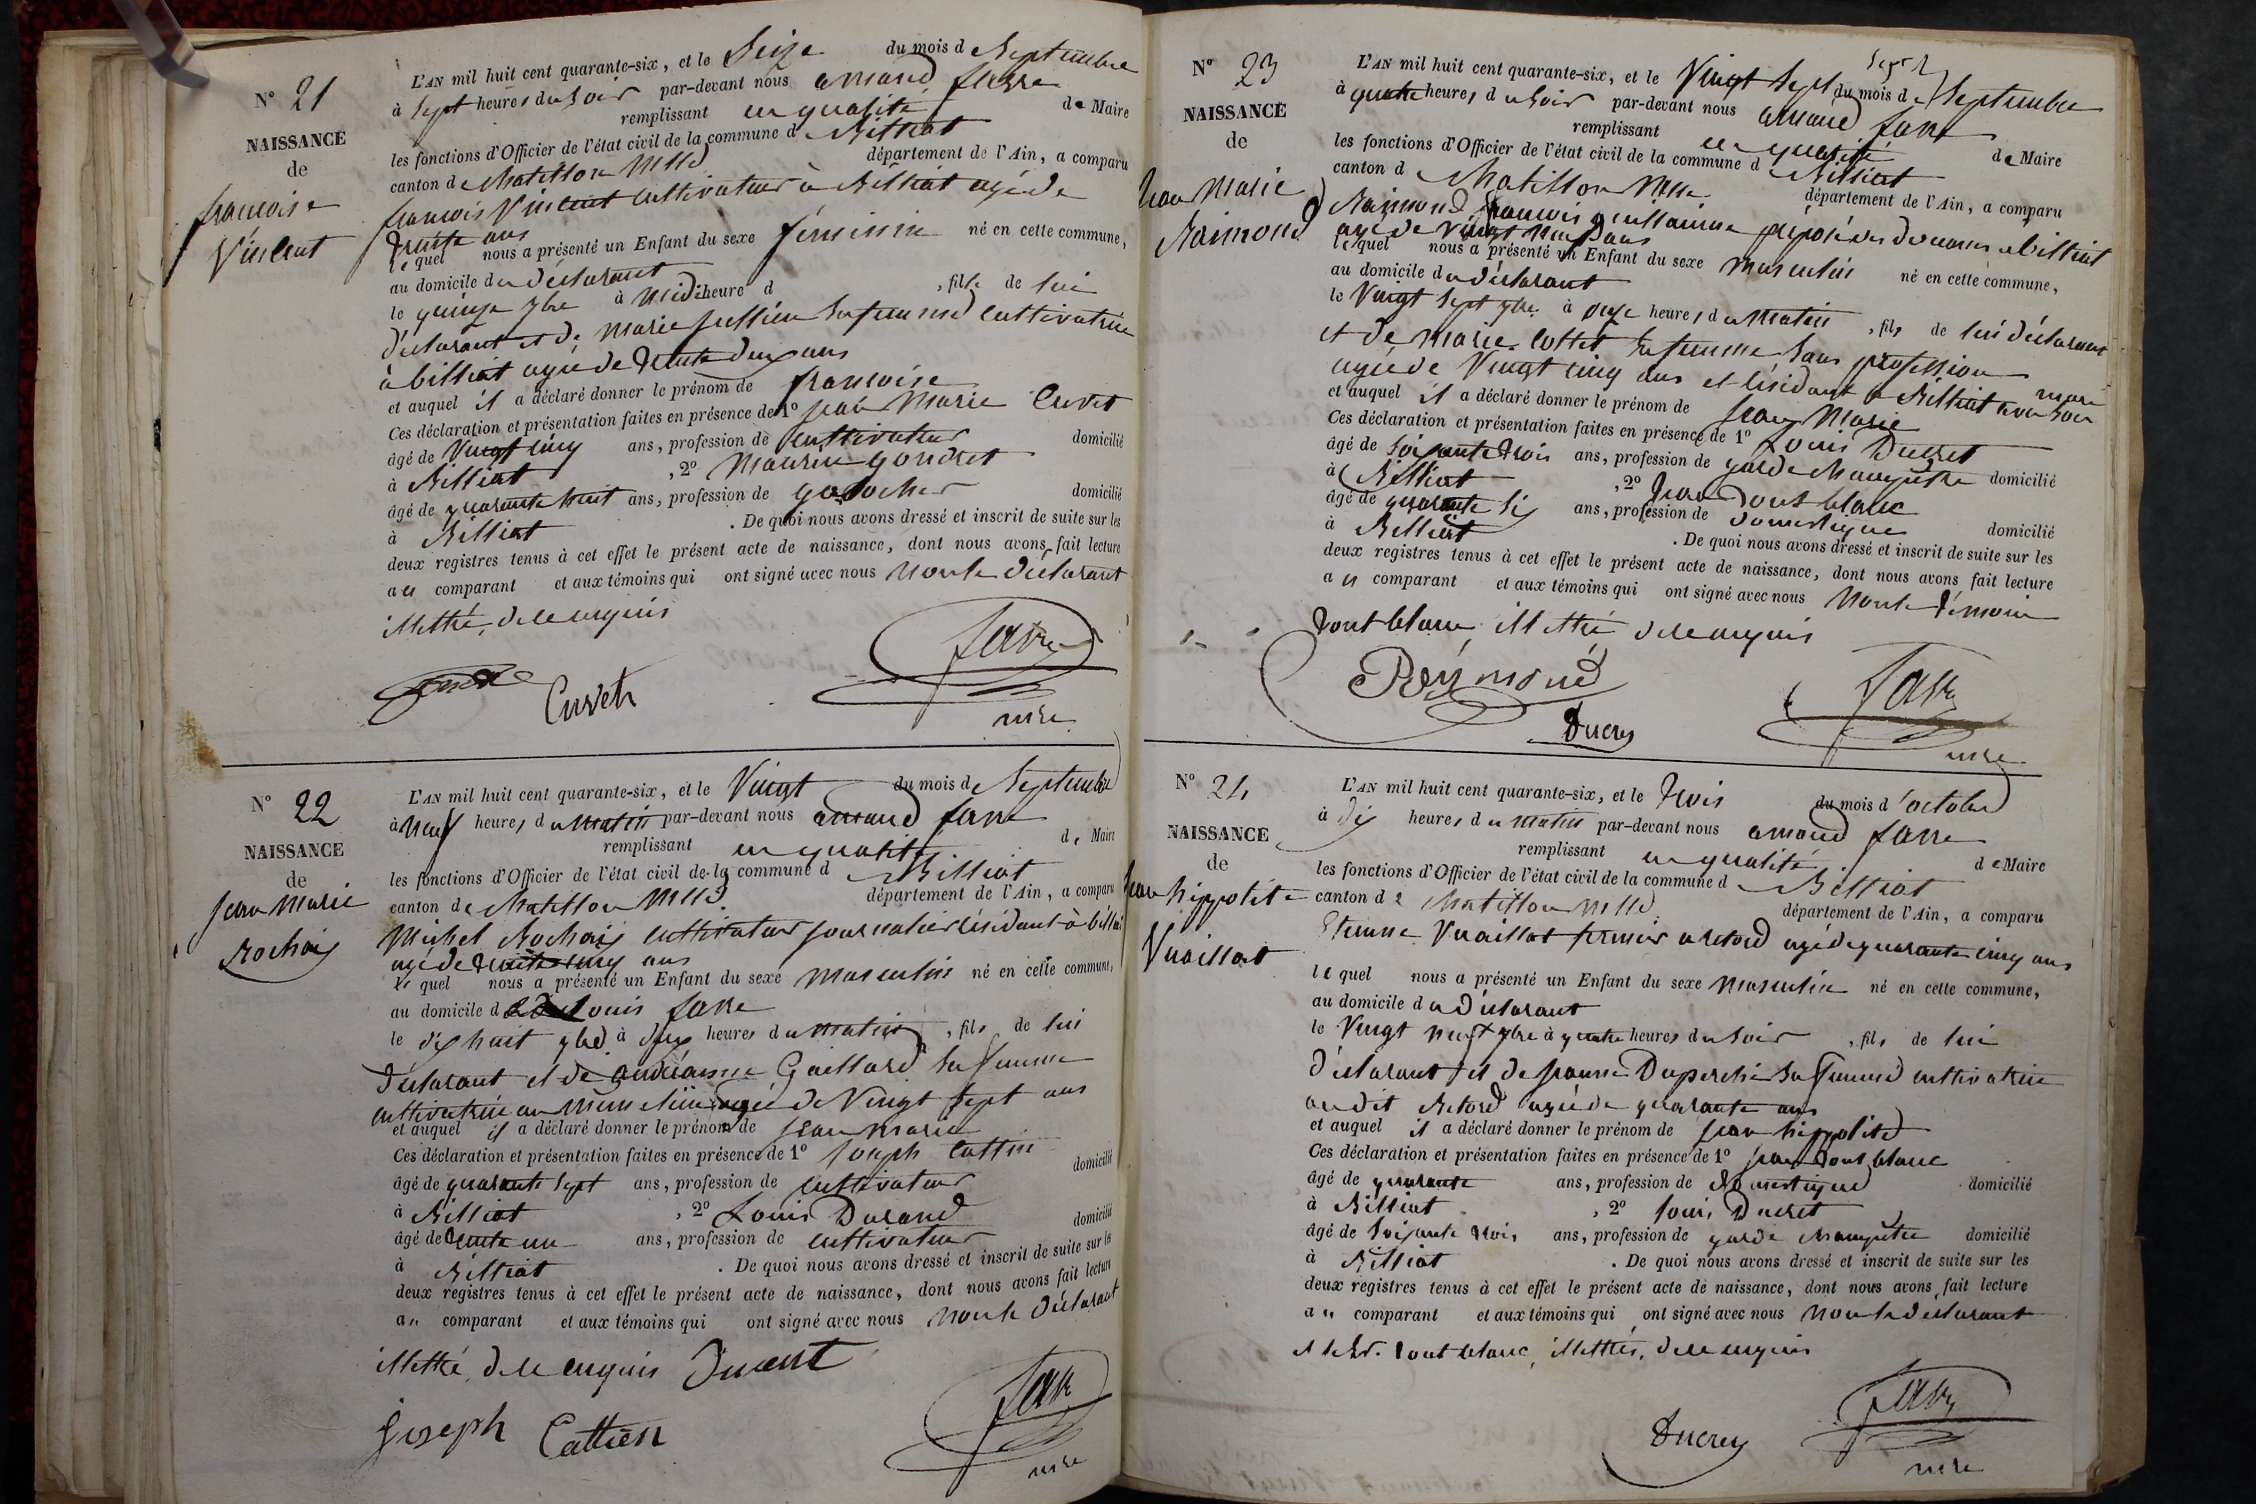 N° 21
NAISSANCE
de
françoise
Vincent
L'AN mil huit cent quarante-six, et le Seize du mois d e Septembre
à Sept heures du Soir par-devant nous amand favre
remplissant en qualité d e Maire
les fonctions d'Officier de l'état civil de la commune d e Billiat
canton d e Chatillon département de l'Ain, a comparu
françois Vincent cultivateur à Billiat agé de
trente ans
le quel nous a présenté un Enfant du sexe féminin né en cette commune,
au domicile du déclarant
le quinze 7bre à midi heure d , fille de lui
déclarant et de marie sa femme cultivatrice
à billiat agée de trente deux ans
et auquel il a déclaré donner le prénom de françoise
Ces déclaration et présentation faites en présence de 1° jean Marie Cuvet
âgé de Vingt cinq ans, profession de cultivateur domicilié
à Billiat , 2° Maurice gondret
âgé de quarante huit ans, profession de galocher domicilié
à Billiat . De quoi nous avons dressé et inscrit de suite sur les
deux registres tenus à cet effet le présent acte de naissance, dont nous avons fait lecture
au comparant et aux témoins qui ont signé avec nous non le déclarant
illettré, de ce enquis
favre
Cuvet
mre
N° 22
NAISSANCE
de
jean Marie
Rochaix
L'AN mil huit cent quarante-six, et le Vingt du mois d e Septembre
à neuf heures du matin par-devant nous amand favre
remplissant en qualité d e Maire
les fonctions d'Officier de l'état civil de la commune d e Billiat
canton d e Chatillon département de l'Ain, a comparu
Michel Rochaix cultivateur journalier résidant à billiat
agé de trente cinq ans
le quel nous a présenté un Enfant du sexe masculin né en cette commune,
au domicile de Louis favre
le dix huit 7bre à dix heures du matin , fils de lui
déclarant et de andréanne Gaillard sa femme
cultivatrice au même lieu agée de Vingt sept ans
et auquel il a déclaré donner le prénom de jean marie
Ces déclaration et présentation faites en présence de 1° joseph Cattin
domicilié
âgé de quarante sept ans, profession de cultivateur
à Billiat , 2° Louis Durand
domicilié
âgé de trente un ans, profession de cultivateur
à Billiat . De quoi nous avons dressé et inscrit de suite sur les
deux registres tenus à cet effet le présent acte de naissance, dont nous avons fait lecture
au comparant et aux témoins qui ont signé avec nous non le déclarant
illettré, de ce enquis
favre
joseph Cattien
mre
N° 23
NAISSANCE
de
jean Marie
Raimond
L'AN mil huit cent quarante-six, et le Vingt Sept du mois d e Septembre
à quatre heures du Soir par-devant nous amand favre
remplissant en qualité d e Maire
les fonctions d'Officier de l'état civil de la commune d e Billiat
canton d e Chatillon département de l'Ain, a comparu
Raimond françois guillaume préposé des douanes a billiat
agé de vingt neuf ans
le quel nous a présenté un Enfant du sexe masculin né en cette commune,
au domicile du déclarant
le Vingt Sept 7bre à onze heures du matin , fils de lui déclarant
et de Marie Cottet sa femme sans profession
agée de Vingt cinq ans et résidant a Billiat avec son
mari
et auquel il a déclaré donner le prénom de jean Marie
Ces déclaration et présentation faites en présence de 1° Louis Ducret
âgé de soixante trois ans, profession de garde champêtre domicilié
à Billiat , 2° jean Tout blanc
âgé de quarante six ans, profession de domestique domicilié
à Billiat . De quoi nous avons dressé et inscrit de suite sur les
deux registres tenus à cet effet le présent acte de naissance, dont nous avons fait lecture
au comparant et aux témoins qui ont signé avec nous non le témoin
Tout blanc, illettré de ce enquis
Réymond
favre
Ducrey
mre
N° 24
NAISSANCE
de
jean hippolite
Vuaillat
L'AN mil huit cent quarante-six, et le trois du mois d'octobre
à dix heures du matin par-devant nous amand favre
remplissant en qualité d e Maire
les fonctions d'Officier de l'état civil de la commune d e Billiat
canton d e Chatillon département de l'Ain, a comparu
Etienne Vuaillat fermier a retord agé de quarante cinq ans
le quel nous a présenté un Enfant du sexe masculin né en cette commune,
au domicile du déclarant
le Vingt neuf 7bre à quatre heures du soir , fils de lui
déclarant et de jeanne Duperchin sa femme cultivatrice
au dit Retord agée de quarante ans
et auquel il a déclaré donner le prénom de jean hippolite
Ces déclaration et présentation faites en présence de 1° jean Tout blanc
âgé de quarante ans, profession de domestique domicilié
à Billiat , 2° Louis Ducret
âgé de soixante trois ans, profession de garde champêtre domicilié
à Billiat . De quoi nous avons dressé et inscrit de suite sur les
deux registres tenus à cet effet le présent acte de naissance, dont nous avons fait lecture
au comparant et aux témoins qui ont signé avec nous non le déclarant
et le Sr. Tout blanc, illettrés, de ce enquis
favre
Ducrey
mre